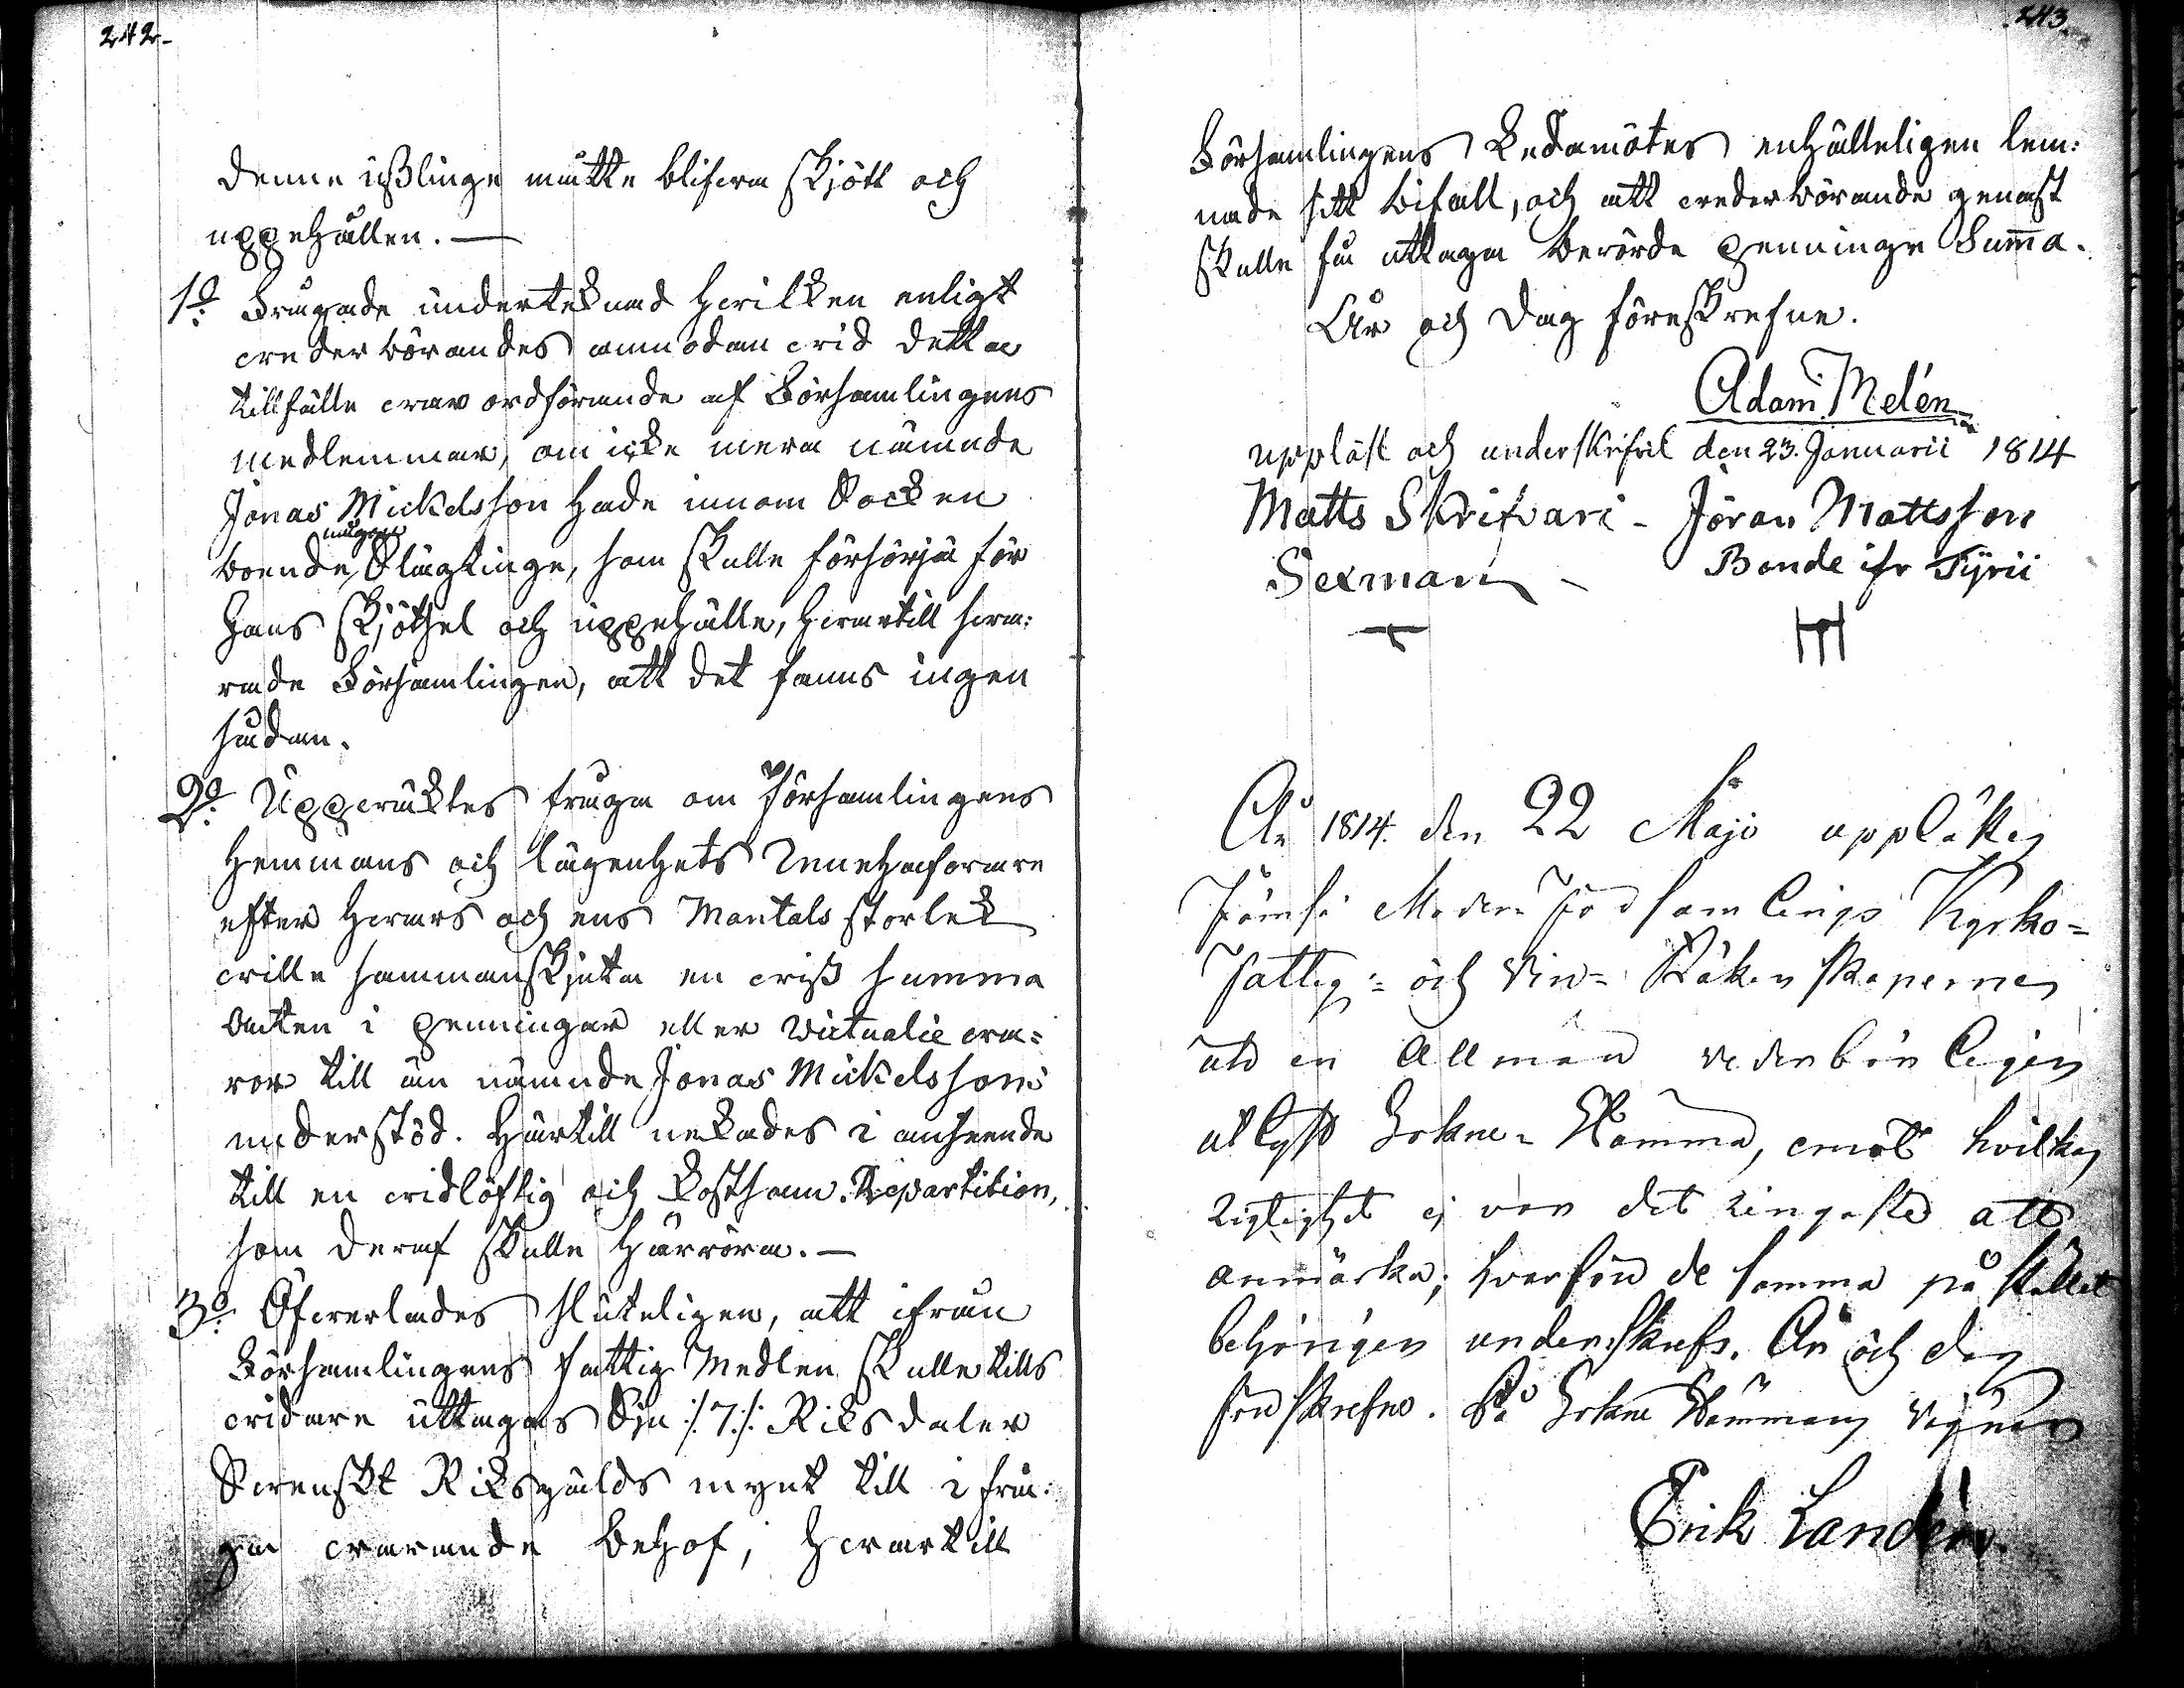 242.
denne ußlinge måtte blifva skjött och
uppehållen. —
1o: Frågade underteknad hvilken enligt
vederbörandes anmodan vid detta
tillfälle var ordförande af Församlingens
medlemmar, om icke mera nämnde
Jonas Mickelsson hade innom Socken
boende några Slägtinge, som skulle försörja för
hans skjötsel och uppehälle, hvartill sva:
rade Församlingen, att det fanns ingen
sådan.
2o: Uppväcktes fråga om Församlingens
Hemmans och lägenhets Innehafvare
efter hvars och ens Mantals storlek
ville sammanskjuta en viß summa
Antten i penningar eller Victualie va=
ror till än nämnde Jonas Mickelssons
understöd. Härtill nekades i anseende
till en vidlöftig och kostsam Repartition,
som deraf skulle härröra. —
3o: Öfverlades sluteligen, att ifrån
Församlingens fattig Medlen skulle tills
vidare uttagas Sju :/: 7 :/: Riksdaler
Svenskt Riksgälds mynt till i frå:
ga varande behof, hvartill
243.
Församlingens Ledamötes enhälleligen lem:
nade sitt bifall, och att vederbörande genast
skulle få uttaga berörde penninge Summa.
År och Dag föreskrefne.
Adam Melén
uppläst och underskrifvit den 23. Januarii 1814
Matts Skrifvari - Jöran Mattsson
Sexman - Bonde ifr Tyrii
År 1814. den 22 Maji upplästes
Moder Församlings Kyrko=
Fattig= och Vin= Räkenskaperne
uti en Allmän vederbörligen
utlyst Sokne= Stämma, emot hvilkas
Rigtighet ej var det ringaste att
anmärka; hvarföre de samma på stället
behörigen underskrefs. År och dag
förr skrefne. På Sokne Stämmans vägnar
Erik Landén.